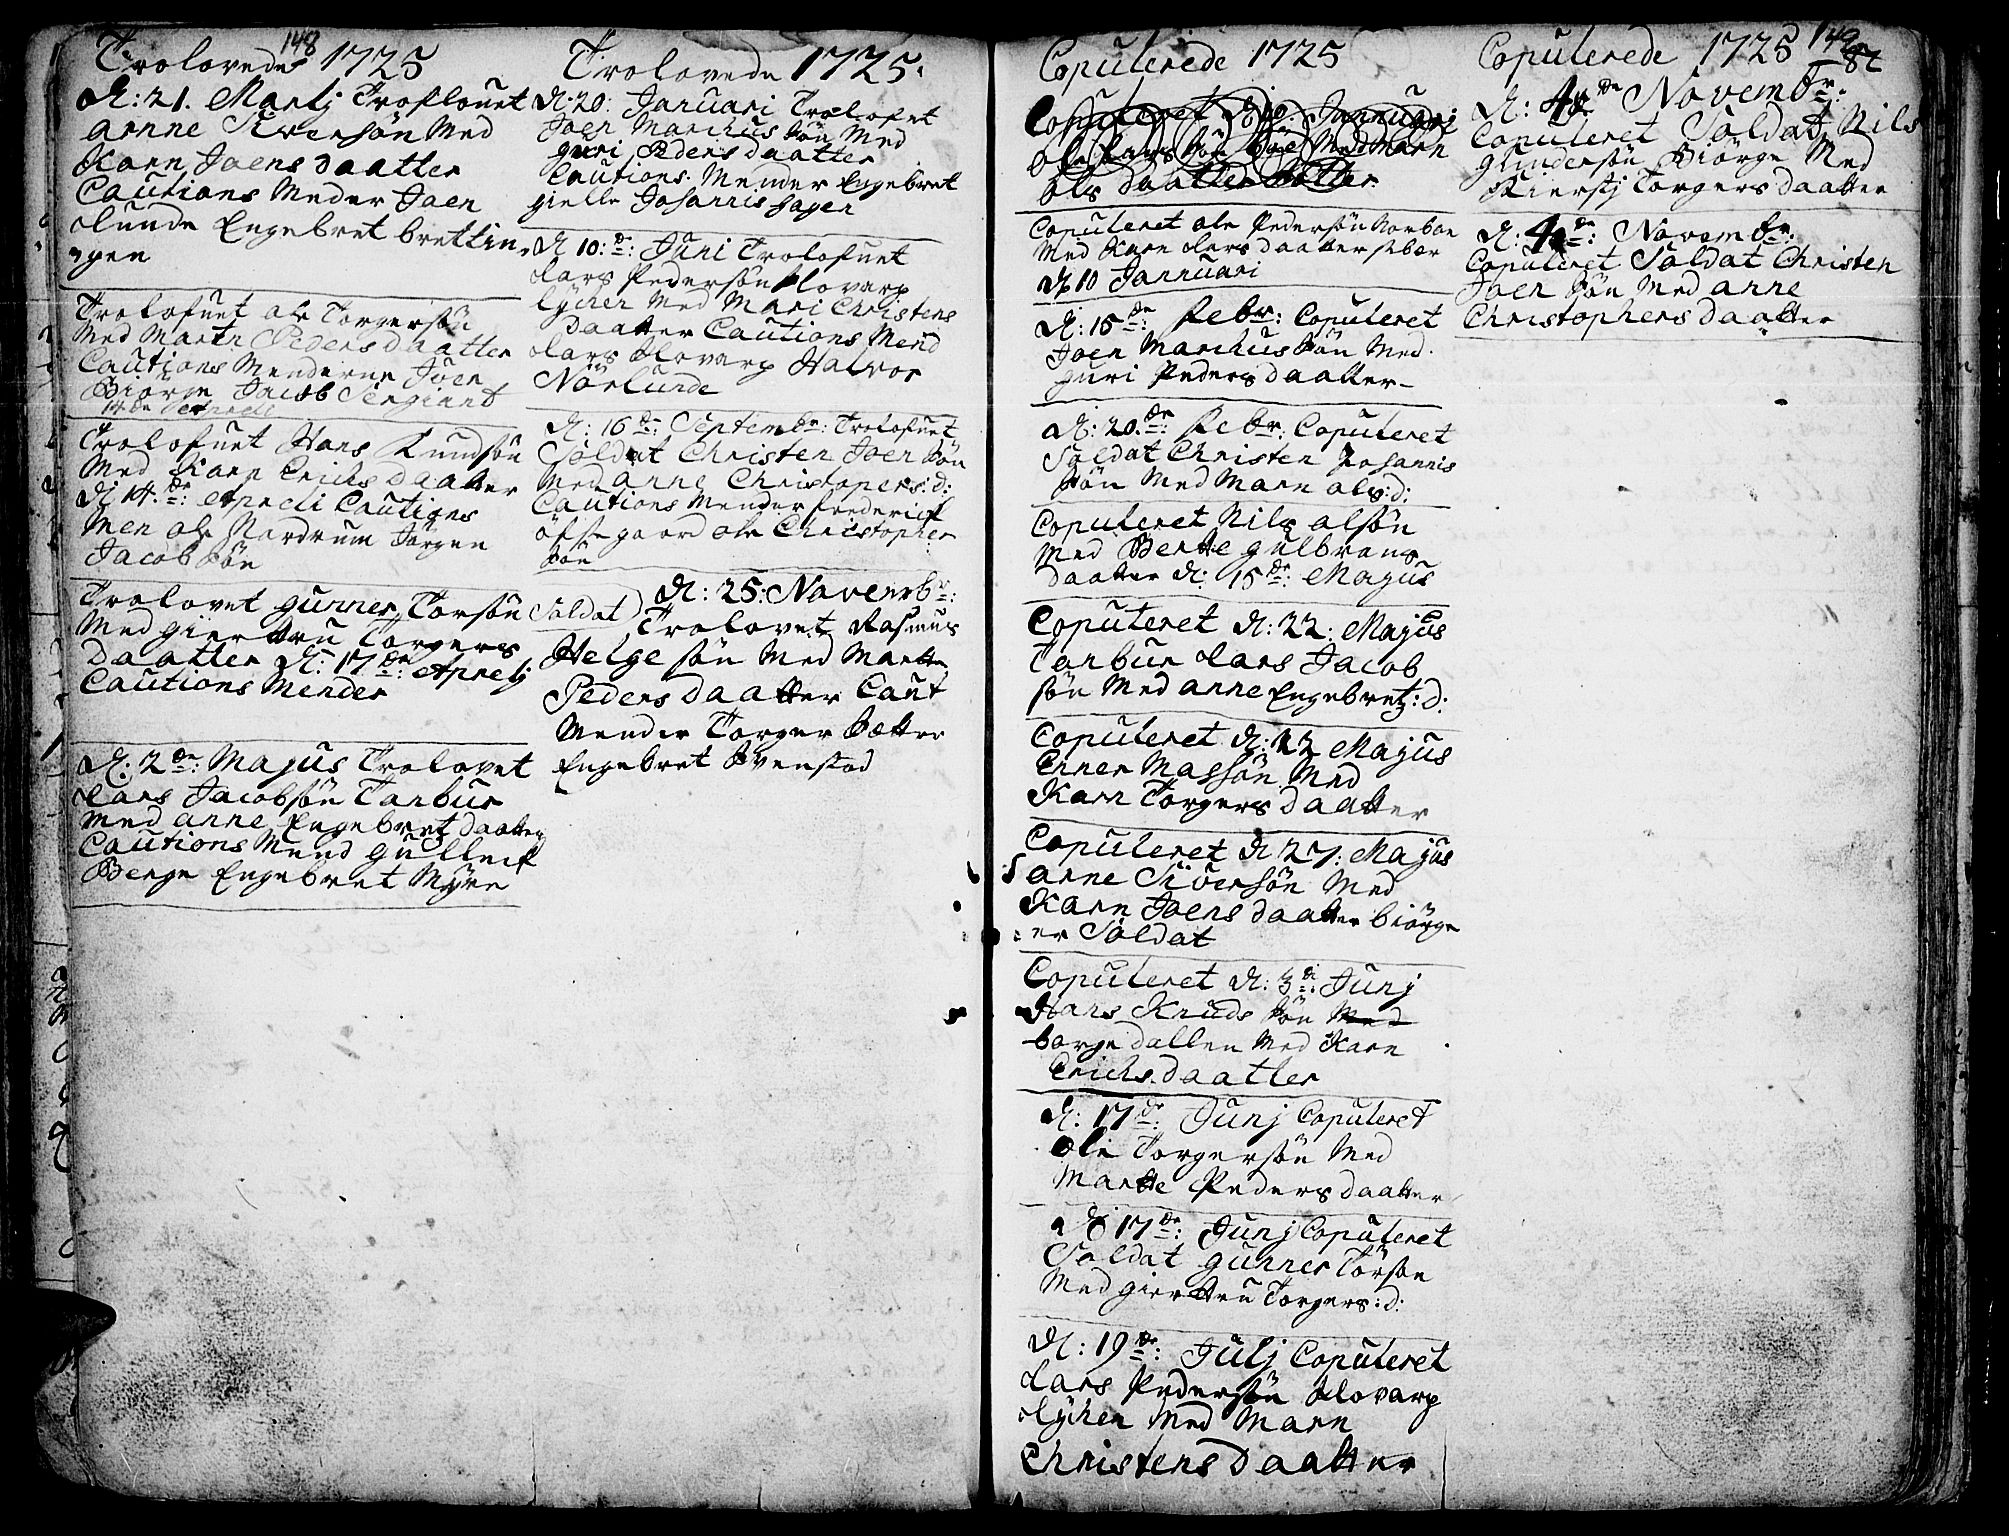 148
Trolovede 1725
d: 21. Martj Troflouet
arnne Siversön Med
Karn Joens daatter
Cautions Meder Joen
Lunde Engebret brettin,
gen
Trolofuet ole Torgersön
Med Marte Peders daatter
Cautions Menderne Joen
Biörge Jacob Sergiant
14de Aprili
Trolofuet Hans Knudsön
Med Karn Erichs daatter
d: 14. de: Aprili Cautions
Men ole Nordrum Jörgen
Jacob sön
Trolovet gunner Torsön
Med giertru Torgers
daatter d: 17 de: Aprelj
Cautions Mender
d: 2 de: Majus Trolovet
Lars Jacobsön Tanbur
Med anne Engebretz daatter
Cautions Mend gulleich
Berge Engebret Myre
Trolovede 1725.
d: 20: Januari Trolofuet
Joen Marchus sön Med
guri Peders daatter
Cautions. Mender Engebret
gielle Johannis hagen
d 10: de: Juni Trolofuet
Lars Pedersön Klovarp
Lychen Med Mari Christens
daatter Cautions Mend
Lars Klovarp Halvor
Nörlunde
d: 16 de: September: Trolofuet
Soldat Christen Joen sön
Med anne Christopers: d:
Cautions Mender frederich
öfre gaard ole Christopher
sön
Soldat d: 25: November:
Trolovet Rasmus
Helge sön Med Marte
Peders daatter Caut
Mender Torger sætter
Engebret Svenstad
Copulerede 1725
Copuleret d: 10: Jannuari
ole Lars sön boe Med Marn
ols daatter
Copuleret ole Pedersön Norboe
Med Karn Lars daatter
d 10 Jannuari
d: 15 de: Febr: Copuleret
Joen Marchus sön Med
guri Peders daatter
d: 20. de: Febr: Copuleret
Soldat Christen Johannis
sön Med Marn ols: d:
Copuleret Nils olsön
Med Berte gulbrans
daatter d: 15 de: Majus
Copuleret d: 22: Majus
Tanbur Lars Jacob
sön Med anne Engebretz: d:
Copuleret d: 22 Majus
Enner Massön Med
Karn Torgers daatter
Copuleret d 27: Majus
arne Siversön Med
Karn Joens daatter biörge
er Soldat
Copuleret d: 3 de: Junj
Hans Knuds sön Med
borge dallen Med Karn
Erichs daatter
d: 17 de: Junj Copuleret
ole Torgersön Med
Marte Peders daatter
d 17 de: Junj Copuleret
Soldat gunner Törson
Med giertru Torgers: d:
d: 19 de: Julj Copuleret
Lars Pedersön Klovarp
Lychen Med Marn
Christens daatter
149
82
Copulerede 1725
d: 4 de November:
Copuleret Soldat Nils
gundersön Biörge Med
Kierstj Torgers daatter
d: 4 de: November:
Copuleret Soldat Christen
Joen sön Med anne
Christophers daatter